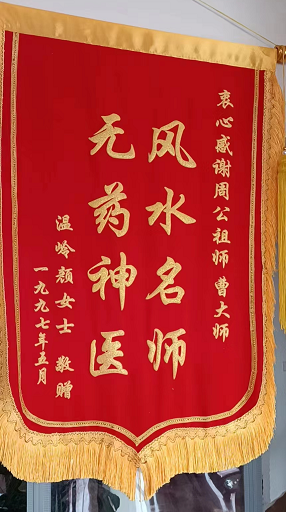 衷心感谢周公祖师 曹大师
风水名师
无药神医
温岭颜女士 敬赠
一九九七年五月